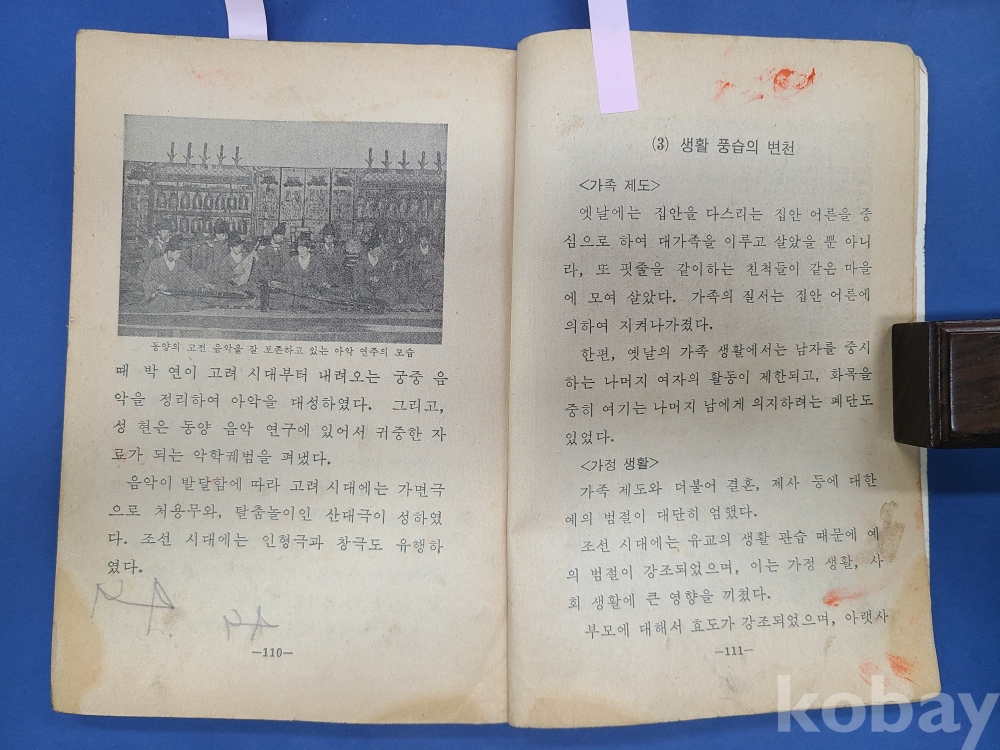 동양의 고전 음악을 잘 보존하고 있는 아악 연주의 모습
때 박 연이 고려 시대부터 내려오는 궁중 음
악을 정리하여 아악을 대성하였다. 그리고,
성 현은 동양 음악 연구에 있어서 귀중한 자
료가 되는 악학궤범을 펴냈다.
음악이 발달함에 따라 고려 시대에는 가면극
으로 처용무와, 탈춤놀이인 산대극이 성하였
다. 조선 시대에는 인형극과 창극도 유행하
였다.
—110—
(3) 생활 풍습의 변천
<가족 제도>
옛날에는 집안을 다스리는 집안 어른을 중
심으로 하여 대가족을 이루고 살았을 뿐 아니
라, 또 핏줄을 같이하는 친척들이 같은 마을
에 모여 살았다. 가족의 질서는 집안 어른에
의하여 지켜나가졌다.
한편, 옛날의 가족 생활에서는 남자를 중시
하는 나머지 여자의 활동이 제한되고, 화목을
중히 여기는 나머지 남에게 의지하려는 폐단도
있었다.
<가정 생활>
가족 제도와 더불어 결혼, 제사 등에 대한
예의 범절이 대단히 엄했다.
조선 시대에는 유교의 생활 관습 때문에 예
의 범절이 강조되었으며, 이는 가정 생활, 사
회 생활에 큰 영향을 끼쳤다.
부모에 대해서 효도가 강조되었으며, 아랫사
—111—
kobay